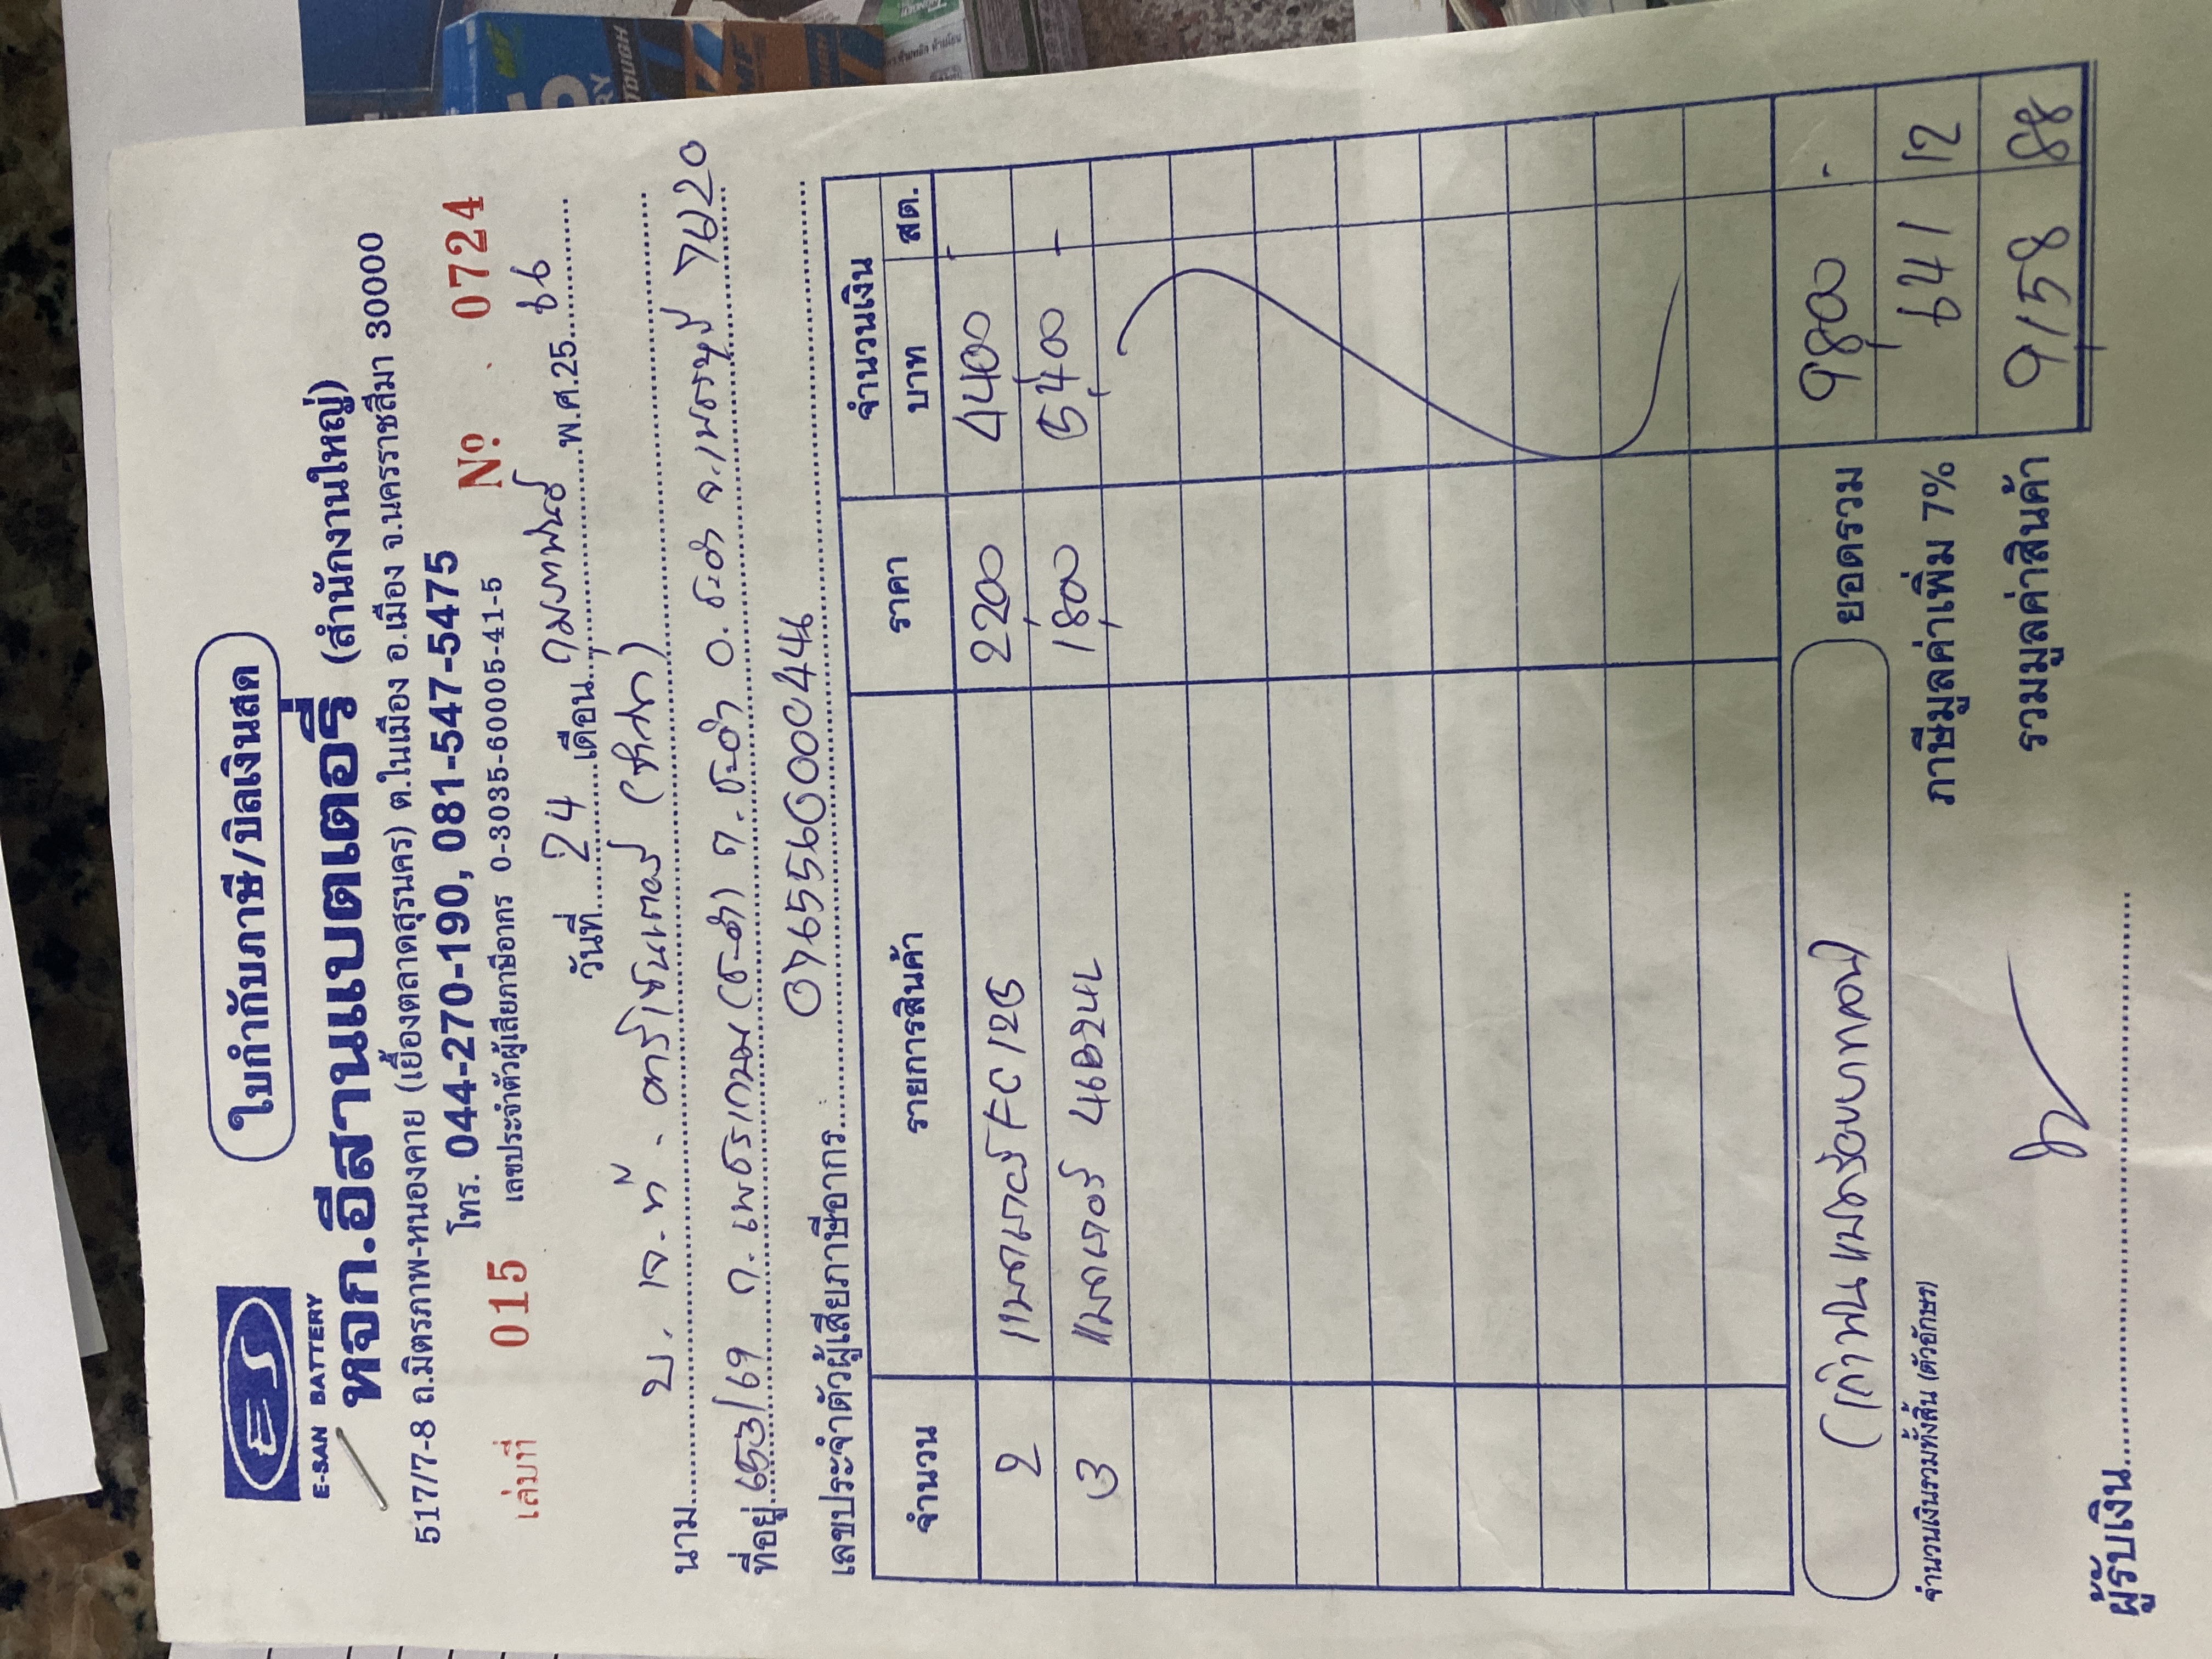 ใบกำกับภาษี/บิลเงินสด
ES
E-SAN BATTERY
หจก.อีสานแบตเตอรี่ (สำนักงานใหญ่)
517/7-8 ถ.มิตรภาพ-หนองคาย (เยื้องตลาดสุรนคร) ต.ในเมือง อ.เมือง จ.นครราชสีมา 30000
โทร. 044-270-190, 081-547-5475
เล่มที่ 015 เลขประจำตัวผู้เสียภาษีอากร 0-3035-60005-41-5 Nº 0724
วันที่ 24 เดือน กุมภาพันธ์ พ.ศ.25 66
นาม บ. เจ.ที.
ที่อยู่ 653/69 ถ.เพชรเกษม (ชะอำ) ต.ชะอำ อ.ชะอำ จ.เพชรบุรี 76120
เลขประจำตัวผู้เสียภาษีอากร 0765560000444
จำนวน รายการสินค้า ราคา จำนวนเงิน
บาท สต.
2 แบตเตอรี่ FC 125 2200 4400 -
3 แบตเตอรี่ 46B24L 1800 5,400 -
(เก้าพันแปดร้อยบาทถ้วน) ยอดรวม 9800 -
จำนวนเงินรวมทั้งสิ้น (ตัวอักษร) ภาษีมูลค่าเพิ่ม 7% 641 12
รวมมูลค่าสินค้า 9158 88
ผู้รับเงิน